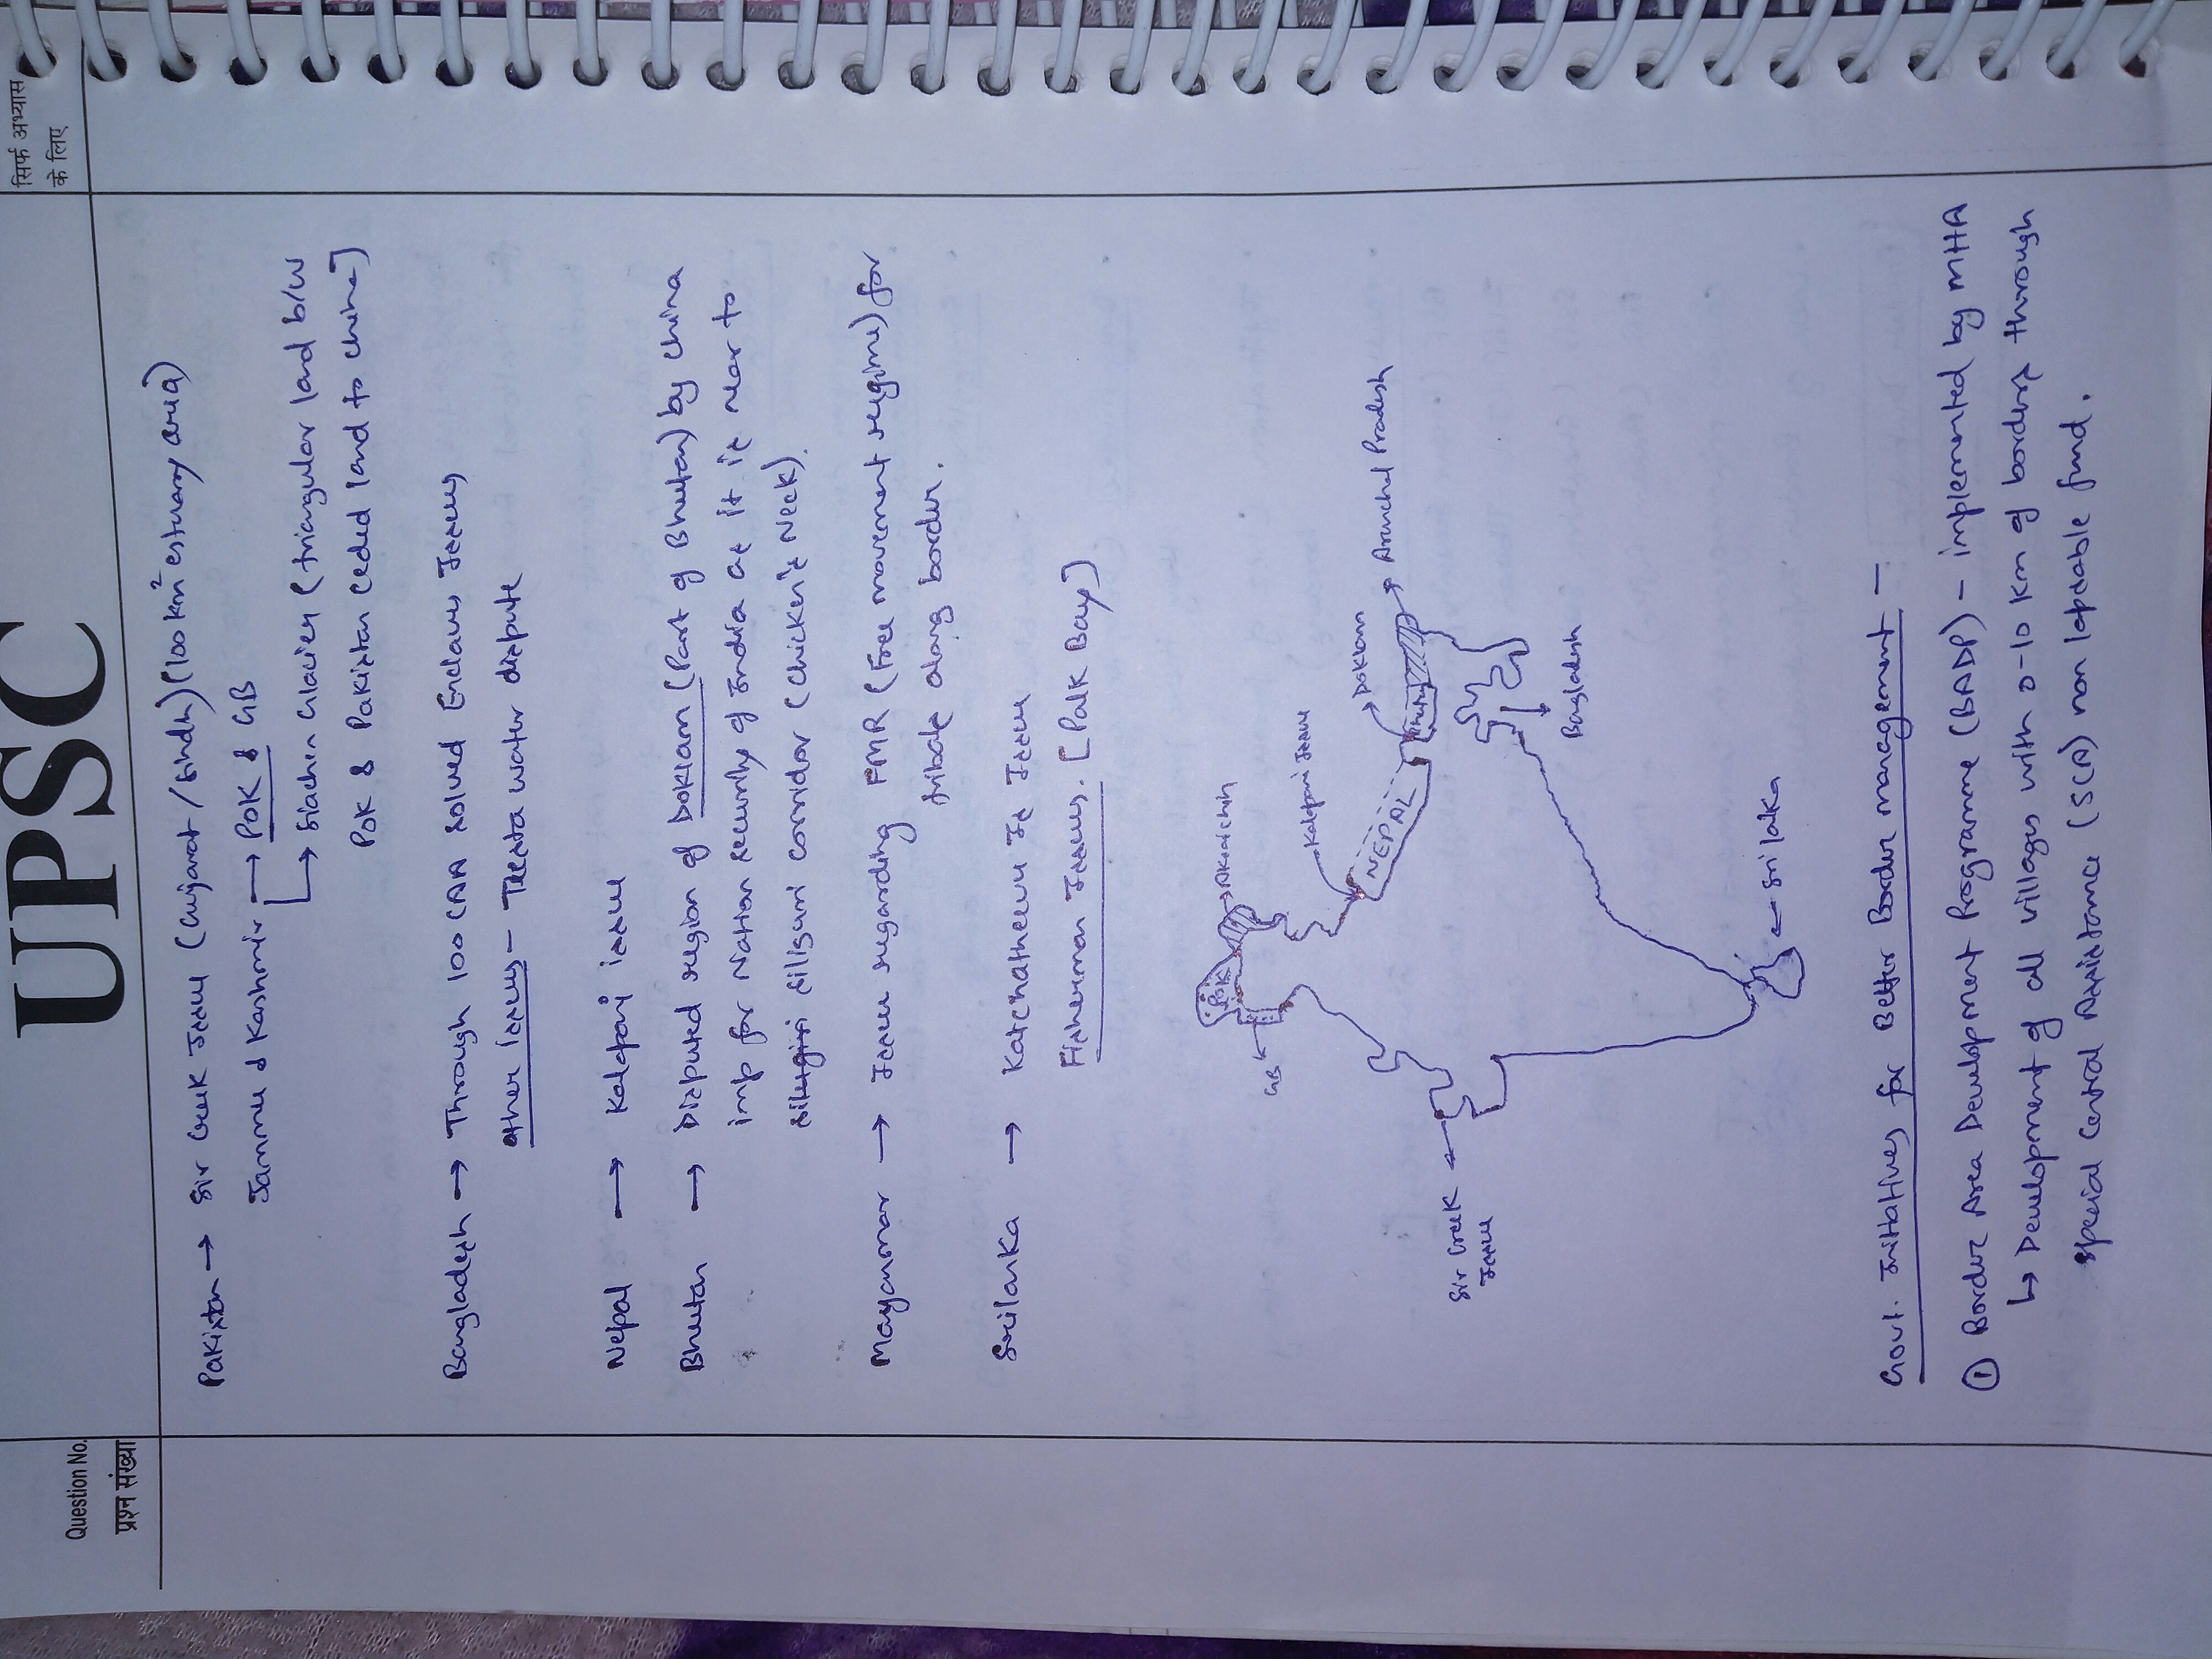 UPSC
सिर्फ अभ्यास
के लिए
Question No.
प्रश्न संख्या
Pakistan → Sir Creek Issue (Gujarat/Sindh) (100 km² estuary area)
Jammu & Kashmir → POK & GB
→ Siachen Glacier (triangular land b/w
POK & Pakistan ceded land to China]
Bangladesh → Through 100 CAA solved Enclaves Issues
Other issues - Teesta water dispute
Nepal → Kalapani issue
Bhutan → Disputed region of Doklam (Part of Bhutan) by China
imp for Nation security of India as it is near to
Siliguri corridor (Chicken's Neck).
Mayanmar → Issue regarding FMR (Free movement regime) for
tribals along border.
Srilanka → Katchatheevu Is Issue
Fisherman Issues. [Palk Bay]
POK
→ Aksaichin
GB
Kalapani Issue
NEPAL
Doklam
Bhutan
→ Arunchal Pradesh
Bangladesh
Sir Creek ←
Issue
← Srilaka
Govt. Initiatives for Better Border management -
① Border Area Development Programme (BADP) - implemented by MHA
↳ Development of all villages with 0-10 Km of borders through
Special Central Assistance (SCA) non lapdable fund.